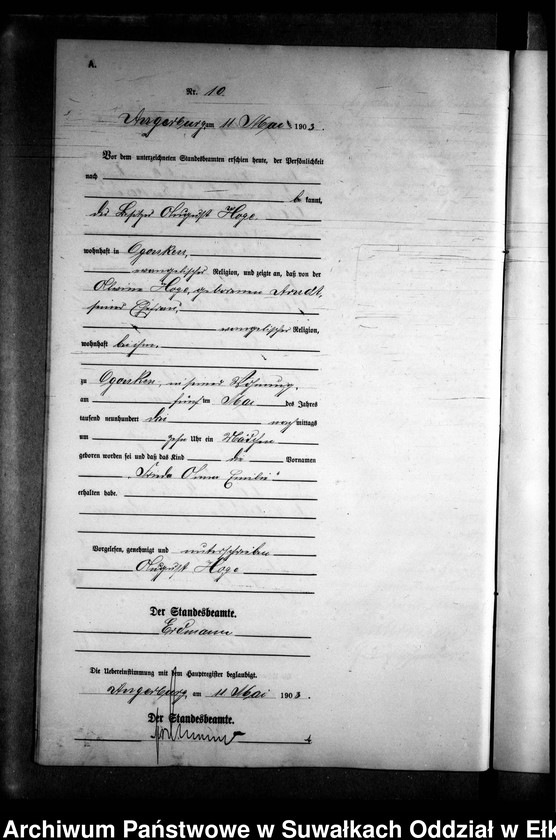 A.
Nr. 10.
Angerburg am 11 Mai 1903.
Vor dem unterzeichneten Standesbeamten erschien heute, der Persönlichkeit
nach
be kannt,
der Besitzer August Hoge
wohnhaft in Ogonken,
evangelischer Religion, und zeigte an, daß von der
Hoge, geborenen Arndt,
seiner Ehefrau,
evangelischer Religion,
wohnhaft bei ihm,
zu Ogonken, in seiner Wohnung,
am fünf ten Mai des Jahres
tausend neunhundert drei nach mittags
um zehn Uhr ein Mädchen
geboren worden sei und daß das Kind die Vornamen
Frieda Emilie
erhalten habe.
Vorgelesen, genehmigt und unterschrieben
August Hoge
Der Standesbeamte.
Erdmann
Die Uebereinstimmung mit dem Hauptregister beglaubigt.
Angerburg, am 11 Mai 1903.
Der Standesbeamte.
Archiwum Państwowe w Suwałkach Oddział w Ełk